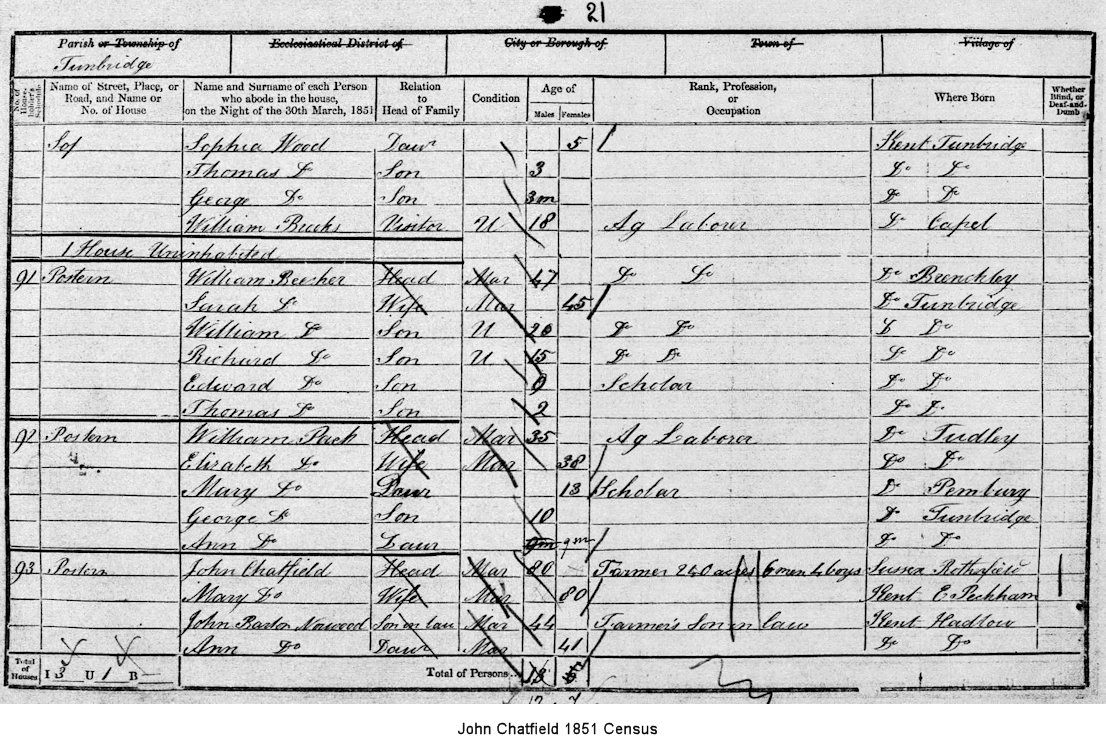 21
Parish or Township of Ecclesiastical District of City or Borough of Town of Village of
Tunbridge
No. of Householder's Schedule Name of Street, Place, or Road, and Name or No. of House Name and Surname of each Person who abode in the house, on the Night of the 30th March, 1851 Relation to Head of Family Condition Age of Males Females Rank, Profession, or Occupation Where Born Whether Blind, or Deaf-and-Dumb
Sophia Wood Daur 5 Kent Tunbridge
Thomas Do Son 3 Do Do
George Do Son 3m Do Do
William Visitor U 18 Ag Laborer Do Capel
1 House Uninhabited
91 Postern William Beecher Head Mar 47 Do Do Do Brenchley
Sarah Do Wife Mar 45 Do Tunbridge
William Do Son U 20 Do Do Do Do
Richard Do Son U 15 Do Do Do Do
Edward Do Son 9 Scholar Do Do
Thomas Do Son 2 Do Do
92 Postern William Pack Head Mar 35 Ag Laborer Do Tudley
Elizabeth Do Wife Mar 38 Do Do
Mary Do Daur 13 Scholar Do Pembury
George Do Son 10 Do Tunbridge
Ann Do Daur 9m 9m Do Do
93 Postern John Chatfield Head Mar 80 Farmer 240 acres 6 men 4 boys Sussex Rotherfield
Mary Do Wife Mar 80 Kent E Peckham
John Barton Norwood Son in law Mar 44 Farmer's Son in law Kent Hadlow
Ann Do Daur Mar 41 Do Do
Total of Houses I 3 U 1 B Total of Persons
John Chatfield 1851 Census